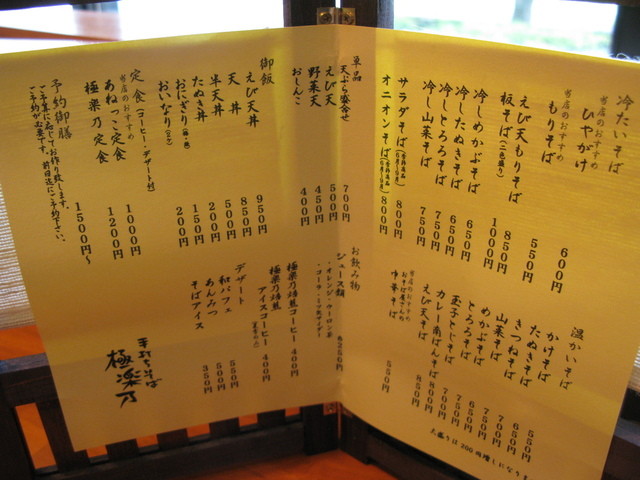 冷たいそば
当店のおすすめ
ひやがけ 600円
当店のおすすめ
もりそば 550円
えび天もりそば 850円
板そば(二色盛り) 1000円
冷しめかぶそば 650円
冷したぬきそば 650円
冷しとろろそば 750円
冷し山菜そば 750円
サラダそば 800円
オニオンそば 800円
温かいそば
かけそば 550円
たぬきそば 650円
きつねそば
山菜そば
めかぶそば
とろろそば
玉子とじそば
カレー南ばんそば 800円
えび天そば 850円
当店のおすすめ
おそば屋さんの
中華そば 550円
大盛りは200円増しになります
単品
天ぷら盛合せ 700円
えび天 500円
野菜天 450円
おしんこ 400円
御飯
えび天丼 950円
天丼 850円
半天丼 500円
たぬき丼 500円
おにぎり 150円
おいなり 200円
定食(コーヒー・デザート付)
当店のおすすめ
あねっこ定食 1000円
極楽乃定食 1200円
予約御膳 1500円〜
ご予算に応じてお作り致します。
ご予約が必要です。前日迄にご予約下さい。
お飲み物
ジュース類 各250円
・オレンジ・ウーロン茶
・コーラ・ミツ矢サイダー
極楽乃焙煎コーヒー 400円
極楽乃焙煎
アイスコーヒー 400円
デザート
和パフェ 550円
あんみつ 500円
そばアイス 350円
手打ちそば
極楽乃